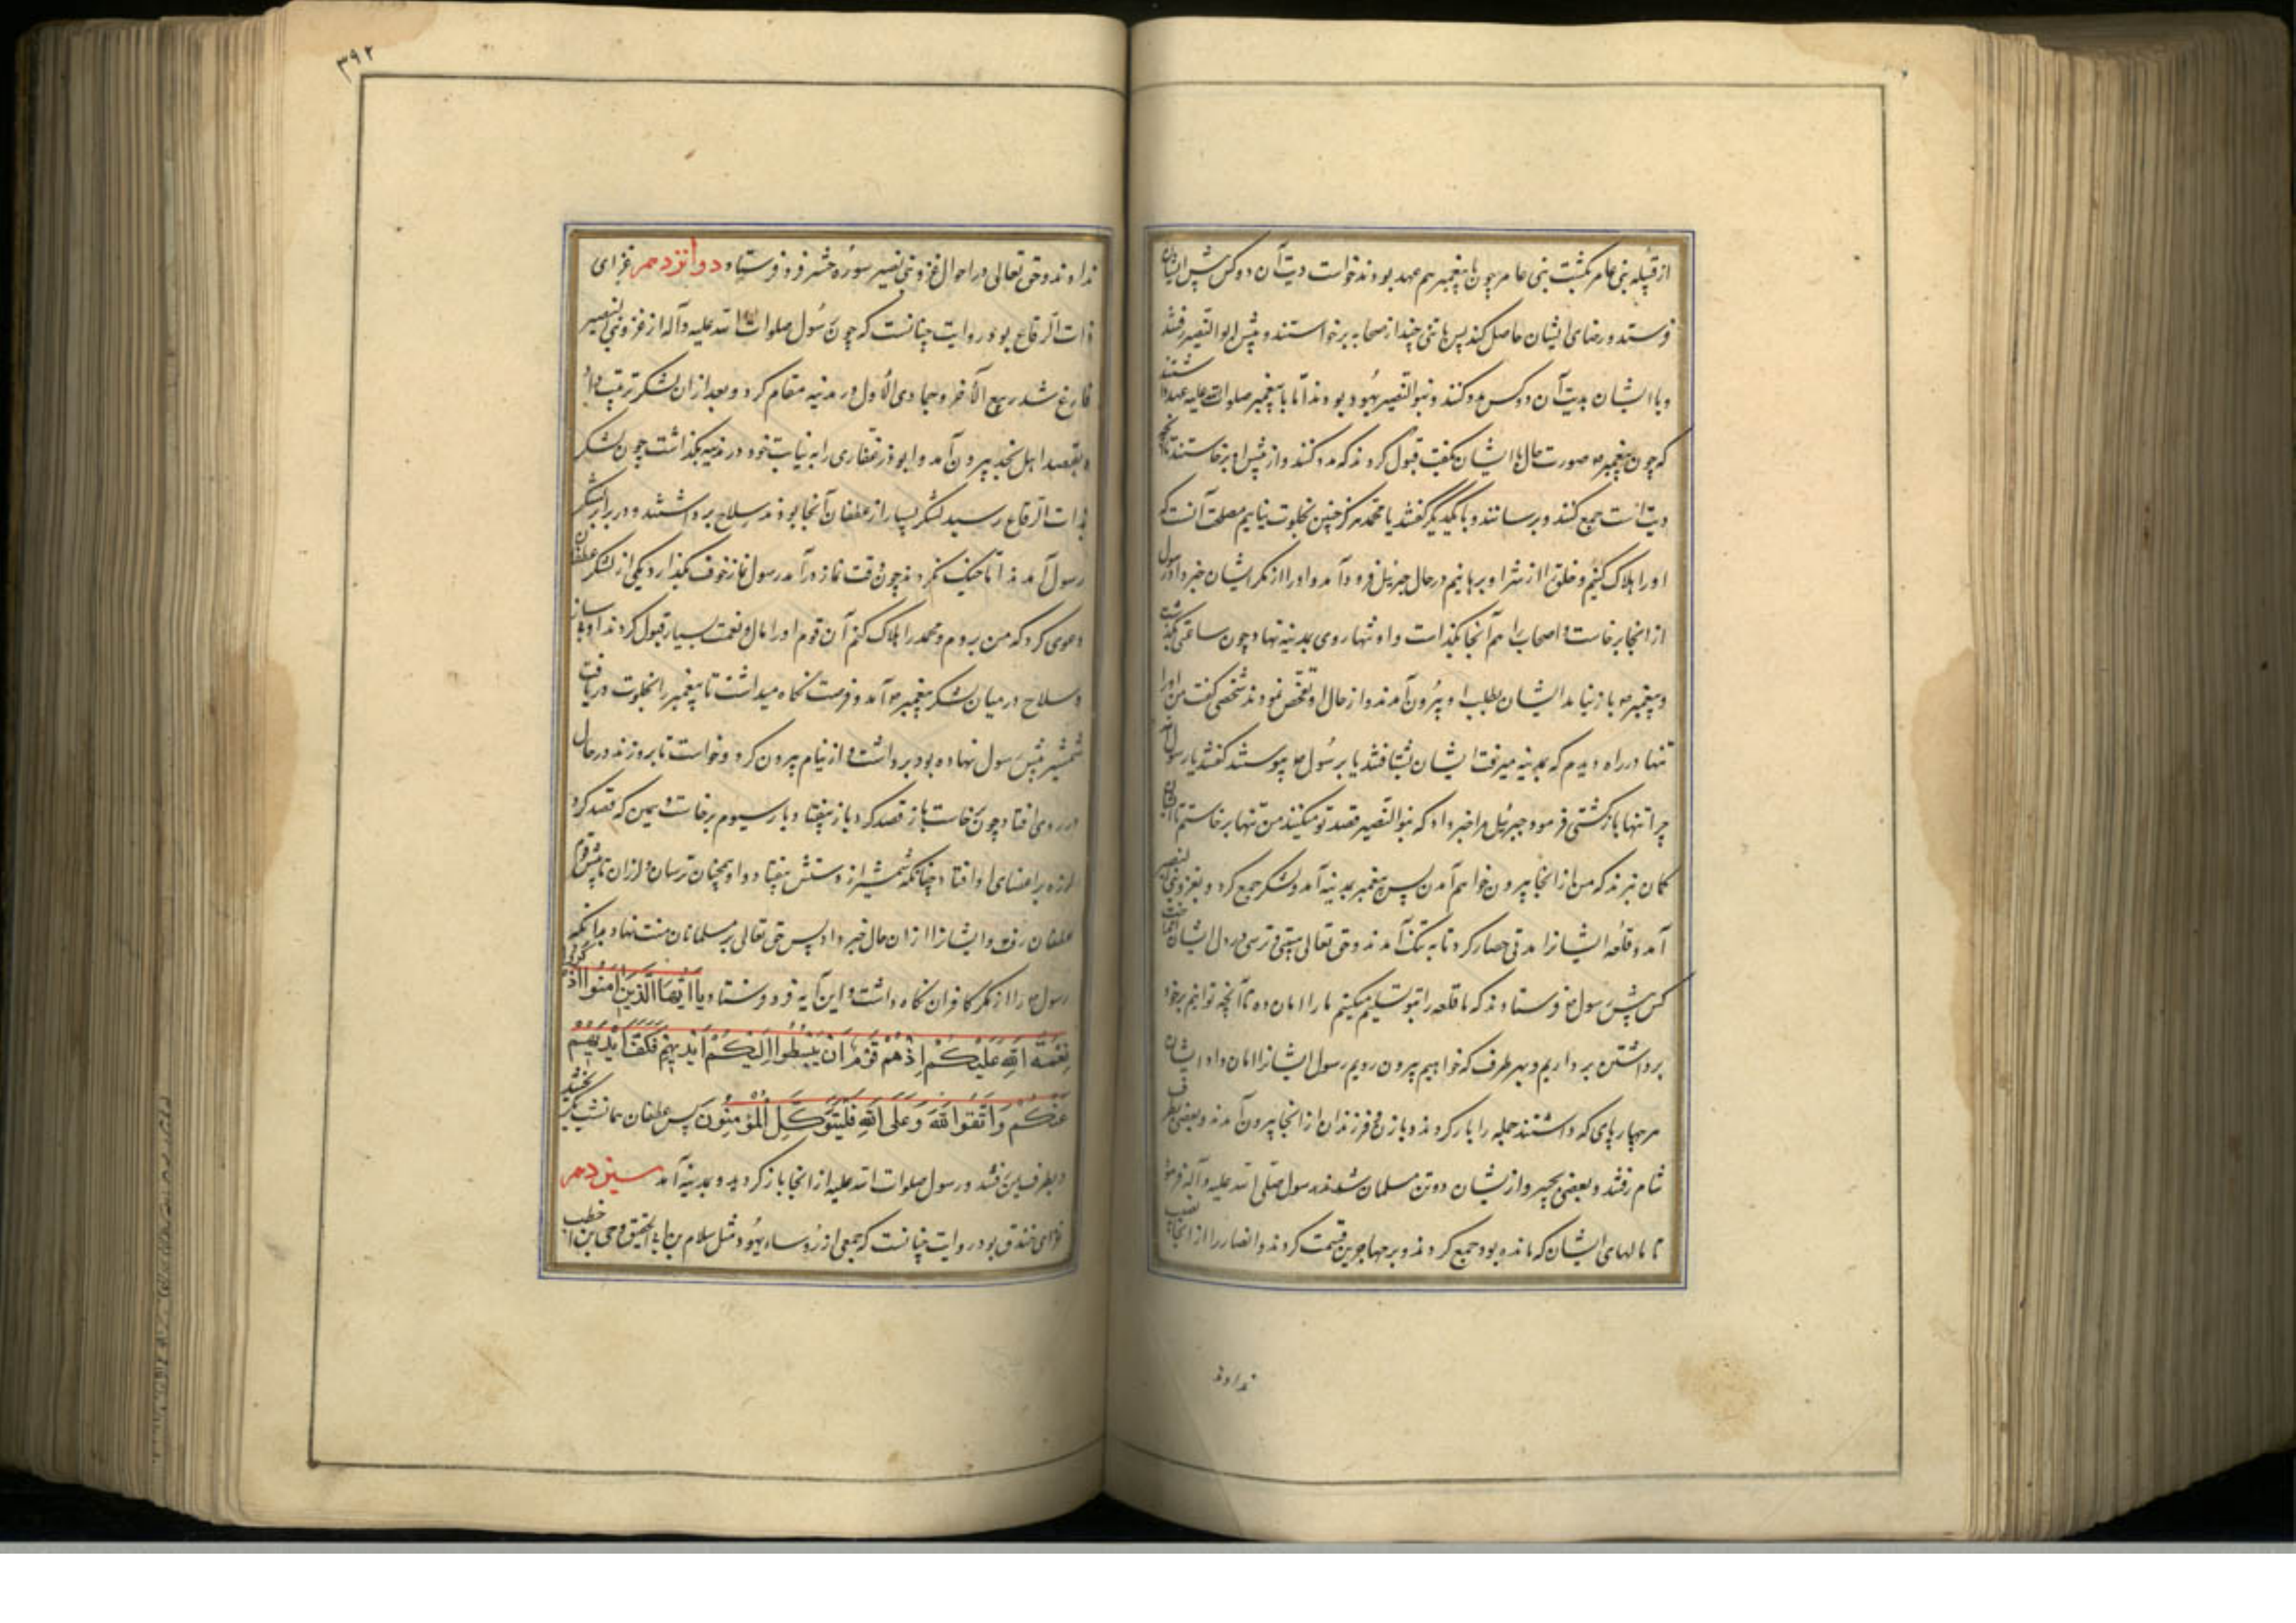 از قبیله بنی عامر بکشت بنی عامر چون با پیغمبر هم عهد بودند خواست دیت آن دو کس پیش ایشان
فرستد و رضای ایشان حاصل کند پس با تنی چند از صحابه برخواستند و پیش بنو النضیر رفتند
و با ایشان بدیت آن دو کس مدد کنند و بنو النضیر یهود بودند اما با پیغمبر صلوات الله علیه عهد داشتند
که چون پیغمبر ص صورت حال با ایشان بگفت قبول کردند که مدد کنند و از پیش او برخاستند تا آنچه
دیت است جمع کنند و برسانند و با یکدیگر گفتند یا محمد هرگز چنین بخلوت نیابیم مصلحت آنست که
او را هلاک کنیم و خلق را از شر او برهانیم در حال جبرئیل فرود آمد و او را از مکر ایشان خبر داد رسول
از انجا برخاست و اصحاب را هم آنجا بگذاشت و او تنها روی بمدینه نهاد چون ساعتی بگذشت
و پیغمبر ص باز نیامد ایشان بطلب او بیرون آمدند و از حال او تفحص نمودند شخصی گفت من او را
تنها در راه دیدم که بمدینه میرفت ایشان بشتافتند تا بر رسول ص پیوستند گفتند یا رسول الله
چرا تنها باز گشتی فرمود جبرئیل مرا خبر داد که بنو النضیر قصد تو میکنند من تنها برخاستم تا
گمان نبرند که من از انجا بیرون خواهم آمدن پس پیغمبر بمدینه آمد و لشکر جمع کرد و بغزو بنی النضیر
آمد و قلعه ایشانرا مدتی حصار کرد تا به تنگ آمدند و حق تعالی هیبتی و ترسی در دل ایشان انداخت
کس پیش رسول ص فرستادند که ما قلعه را بتو تسلیم میکنیم ما را امان ده تا آنچه توانیم بر خود
برداشتن برداریم و بهر طرف که خواهیم بیرون رویم رسول ایشانرا امان داد ایشان
هر چهارپای که داشتند جمله را بار کردند و با زن و فرزندان از انجا بیرون آمدند و بعضی بطرف
شام رفتند و بعضی بخیبر و از یشان دو تن مسلمان شدند رسول صلی الله علیه و آله فرمود
تا مالهای ایشان که مانده بود جمع کردند و بر مهاجرین قسمت کردند و انصار را از انجا نصیب
ندادند
۳۹۲
ندادند و حق تعالی در احوال غزو بنی نضیر سوره حشر فرو فرستاد دوانزدهم غزای
ذات الرقاع بود روایت چنانست که چون رسول صلوات الله علیه و آله از غزو بنی النضیر
فارغ شد ربیع الآخر و جمادی الاول در مدینه مقام کرد و بعد از ان لشکر ترتیب داد
و بقصد اهل نجد بیرون آمد و ابوذر غفاری را به نیابت خود در مدینه بگذاشت چون لشکر
بذات الرقاع رسید لشکر بسیار از غطفان آنجا بودند سلاح برداشتند و در برابر لشکر
رسول آمدند اما جنگ نکردند چون وقت نماز درآمد رسول نماز خوف بگذارد یکی از لشکر غطفان
دعوی کرد که من بروم و محمد را هلاک کنم آن قوم او را مال و نعمت بسیار قبول کردند او با ساز
و سلاح در میان لشکر پیغمبر ص آمد و فرصت نگاه میداشت تا پیغمبر را بخلوت دریافت
شمشیر پیش رسول نهاده بود برداشت و از نیام بیرون کرد و خواست تا بر وزند در حال
در روی افتاد چون برخاست باز قصد کرد باز بیفتاد بار سیوم برخاست همین که قصد کرد
لرزه بر اعضای او افتاد چنانکه شمشیر از دستش بیفتاد و او همچنان ترسان و لرزان تا پیش قوم
غطفان رفت و ایشانرا از ان حال خبر داد پس حق تعالی بر مسلمانان منت نهاد بدانکه
رسول ص را از مکر کافران نگاه داشت و این آیه فرو فرستاد یا ایها الذین آمنوا اذکروا
نِعْمَةَ اللهِ عَلَیْکُمْ اِذْ هَمَّ قَوْمٌ اَنْ یَبْسُطُوا اِلَیْکُمْ اَیْدِیَهُمْ فَکَفَّ اَیْدِیَهُمْ
عَنْکُمْ وَاتَّقُوا اللهَ وَعَلَی اللهِ فَلْیَتَوَکَّلِ الْمُؤْمِنُونَ پس غطفان همان شب بگریختند
و بطرف یمن رفتند و رسول صلوات الله علیه از انجا باز گردید و بمدینه آمد سیزدهم
غزای خندق بود روایت چنانست که جمعی از رؤساء یهود مثل سلام بن ابی الحقیق و حی بن اخطب